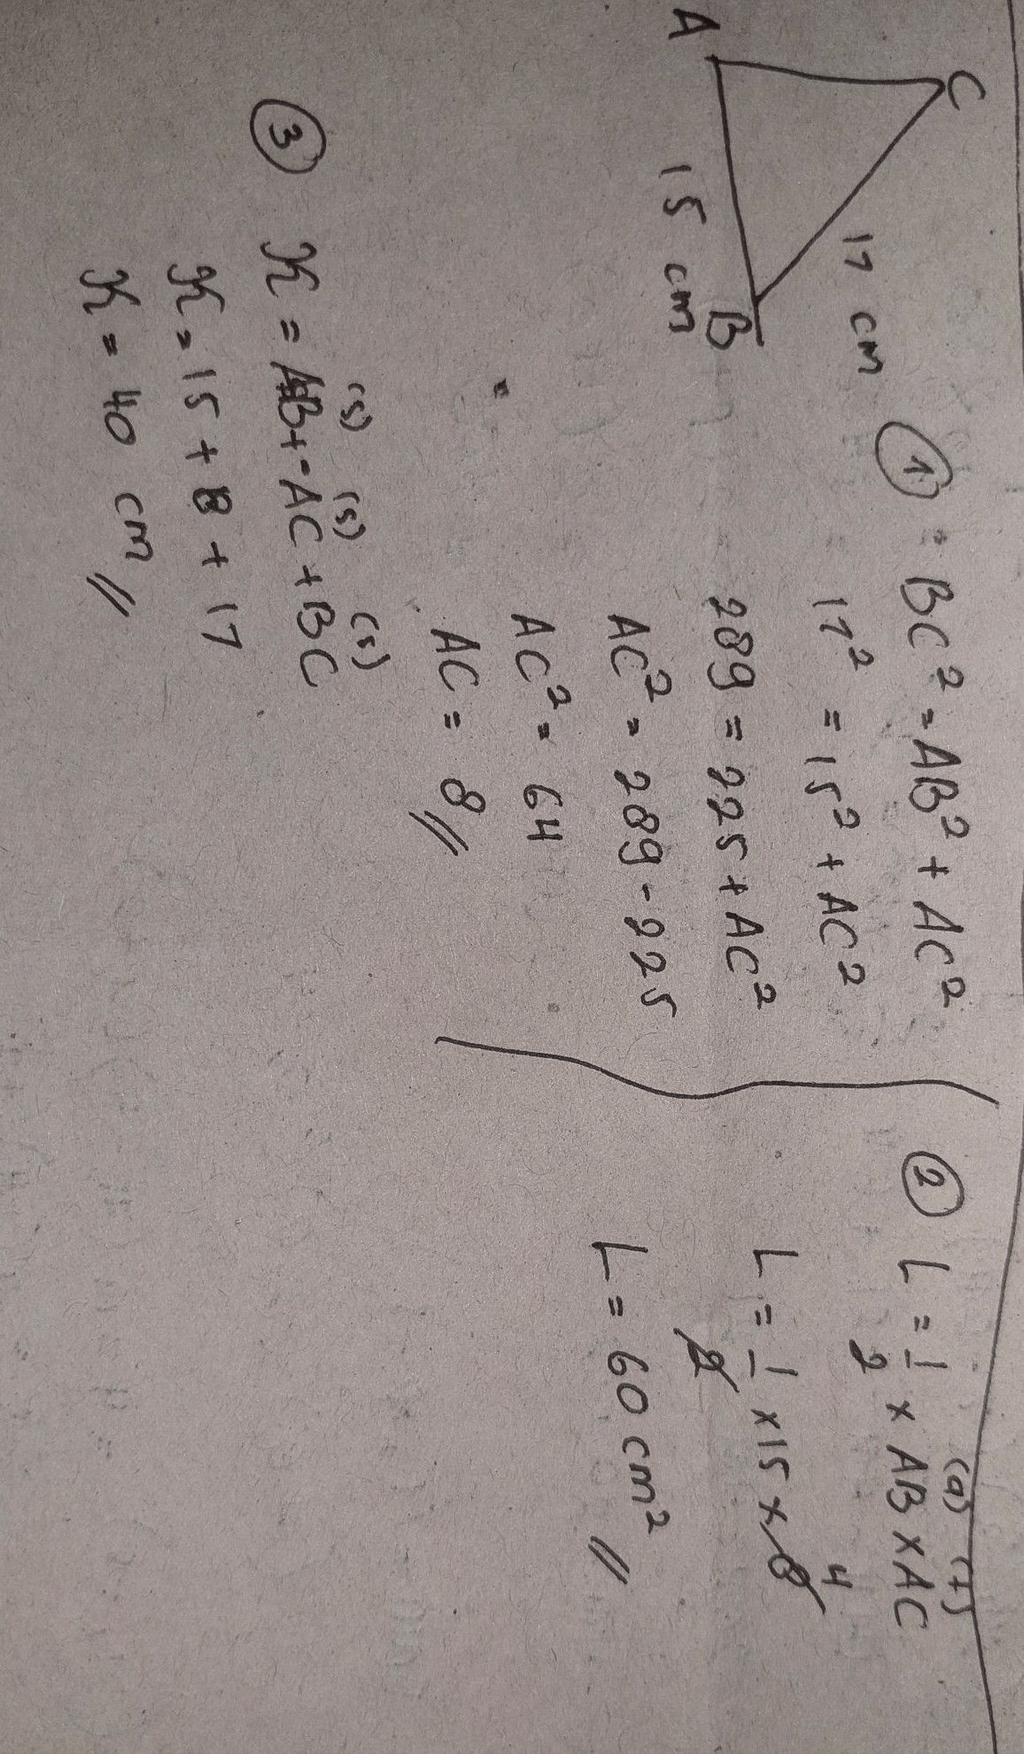 C
17 cm
A
15 cm
B
① = BC² = AB² + AC²
17² = 15² + AC²
289 = 225 + AC²
AC² = 289 - 225
AC² = 64
AC = 8 //
② L = 1/2 × AB (a) × AC (t)
L = 1/2 × 15 × 8 4
L = 60 cm² //
③ K = AB (s) + AC (s) + BC (s)
K = 15 + 8 + 17
K = 40 cm //